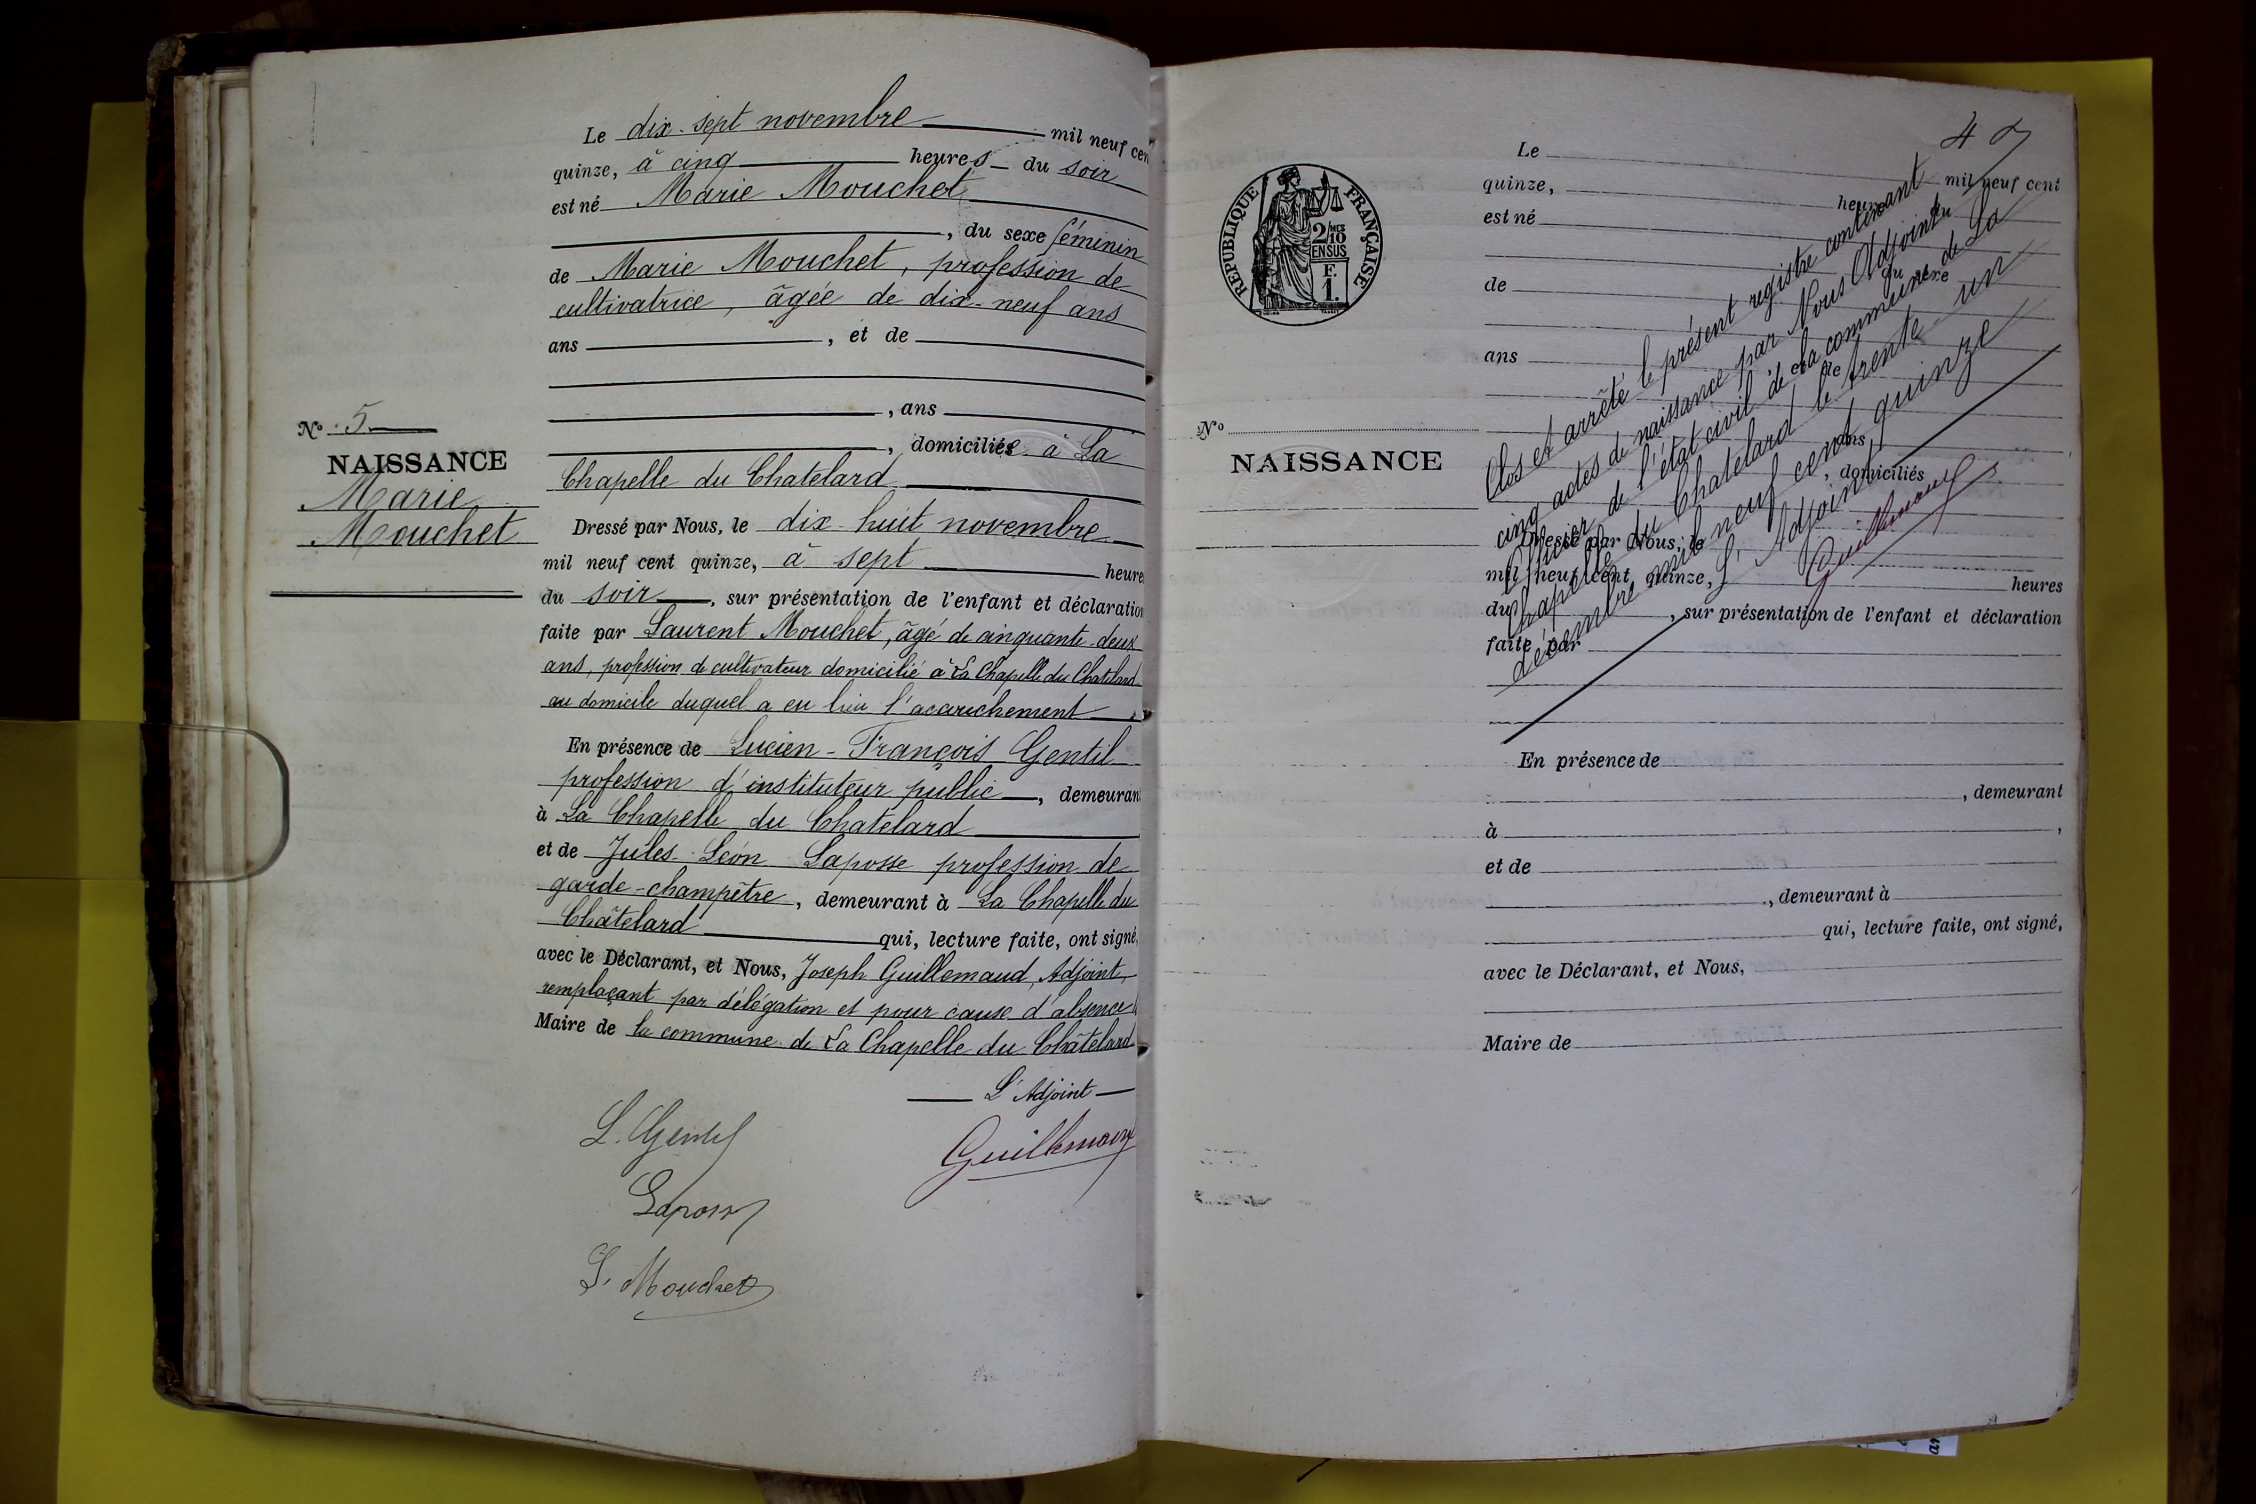 N° 5
NAISSANCE
Marie
Mouchet
Le dix-sept novembre mil neuf cen
quinze, à cinq heures du soir
est né Marie Mouchet
, du sexe féminin
de Marie Mouchet, profession de
cultivatrice, âgée de dix-neuf ans
ans , et de
, ans
, domiciliée à La
Chapelle du Chatelard
Dressé par Nous, le dix-huit novembre
mil neuf cent quinze, à sept heure
du soir , sur présentation de l'enfant et déclaration
faite par Laurent Mouchet, âgé de cinquante-deux
ans, profession de cultivateur domicilié à La Chapelle du Chatelard
au domicile duquel a eu lieu l'accouchement
En présence de Lucien-François Gentil
profession d'instituteur public , demeuran
à La Chapelle du Chatelard
et de Jules Léon Laposse profession de
garde-champêtre, demeurant à La Chapelle du
Châtelard qui, lecture faite, ont signé,
avec le Déclarant, et Nous, Joseph Guillemaud, Adjoint,
remplaçant par délégation et pour cause d'absence
Maire de la commune de La Chapelle du Châtelard
L'Adjoint
L. Gentil
Guillemaud
Laposse
L. Mouchet
4
RÉPUBLIQUE FRANÇAISE
2/10
EN SUS
F.
1.
N°
NAISSANCE
Le mil neuf cent
quinze, heures du
est né
du sexe
de
ans , et de
, ans
, domiciliés
Dressé par Nous, le
mil neuf cent quinze, heures
du , sur présentation de l'enfant et déclaration
faite par
En présence de
, demeurant
à ,
et de
, demeurant à
qui, lecture faite, ont signé,
avec le Déclarant, et Nous,
Maire de
Clos et arrêté le présent registre contenant
cinq actes de naissance par Nous Adjoint
Officier de l'état civil de la commune de La
Chapelle du Chatelard le trente un
décembre mil neuf cent quinze
L'Adjoint,
Guillemaud